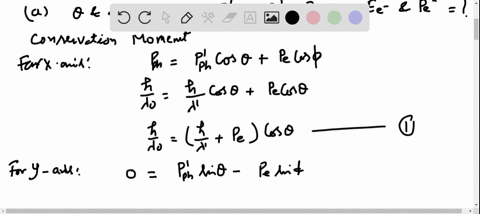 (a) θ &
Ee- & Pe- = ?
Conservation Moment
For x-axis:
Pph = P'ph Cosθ + Pe Cosϕ
h/λ0 = h/λ' Cosθ + Pe Cosθ
h/λ0 = (h/λ' + Pe) Cosθ ——— ①
For y-axis:
0 = P'ph sinθ - Pe sinϕ